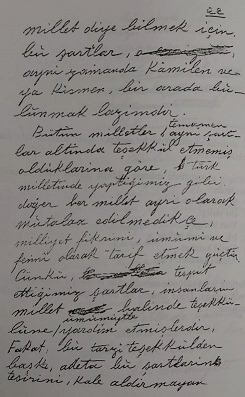 22
millet diye bilmek için,
bu şartlar,
aynı zamanda kâmilen ve-
ya kısmen, bir arada bu-
lunmak lazımdır.
Bütün milletler tamamen aynı şart-
lar altında teşekkül etmemiş
olduklarına göre, Türk
milletinde yaptığımız gibi
diğer her millet ayrı olarak
mütalaa edilmedikçe,
milliyet fikrini, umumî ve
fennî olarak tarif etmek güçtür.
Çünkü, tespit
ettiğimiz şartlar, insanların
millet halinde teşekkü-
lüne umumiyetle yardım etmişlerdir.
Fakat, bu tarzı teşekkülden
başka, adeta bu şartların
tesirini, kale aldırmayan